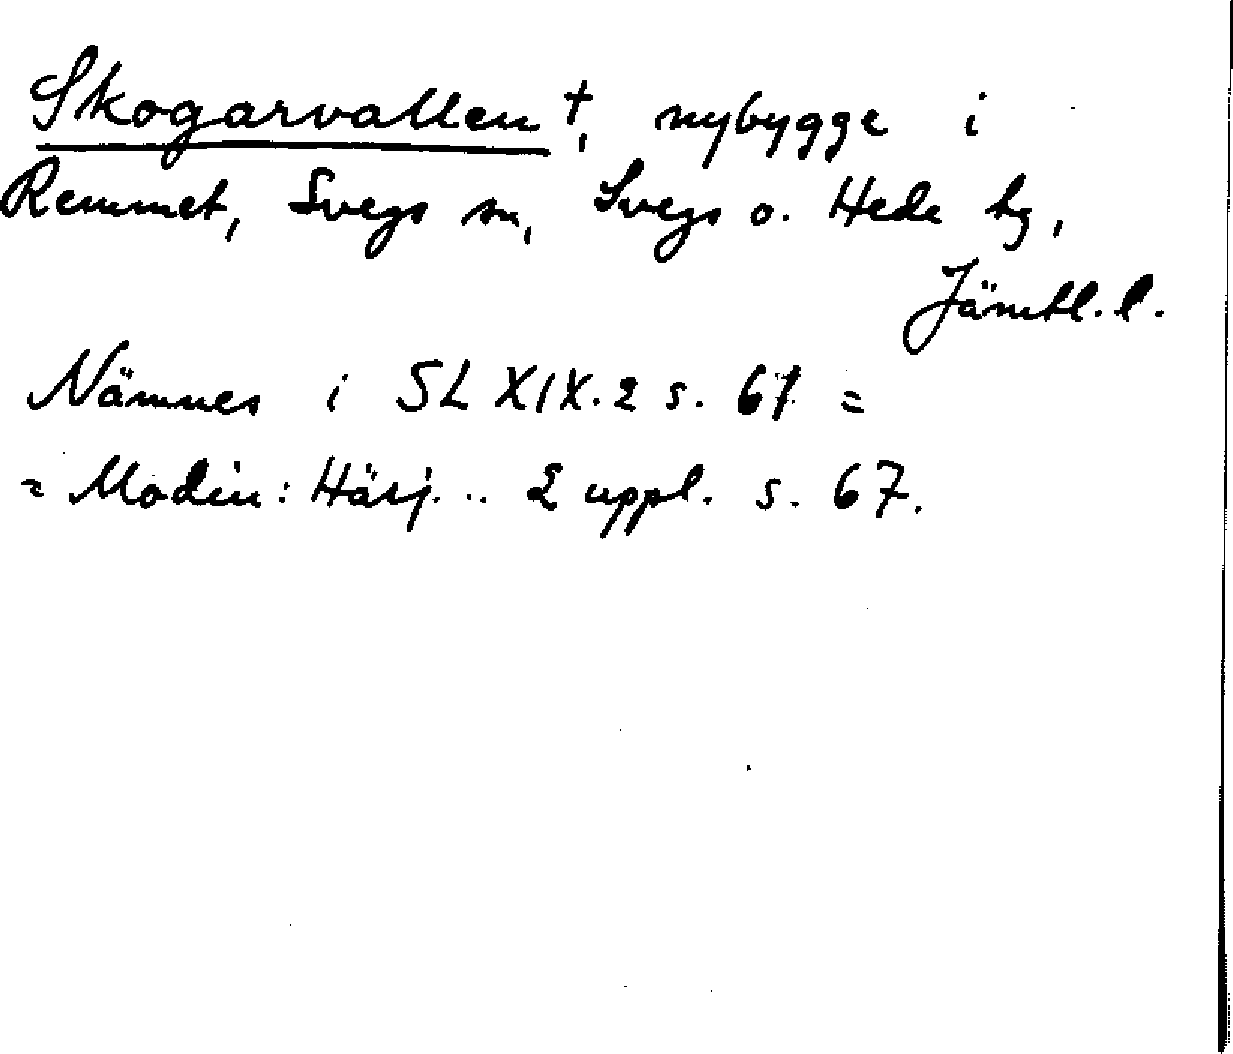 Skogarvallen †, nybygge i
Remmet, Svegs sn, Svegs o. Hede tg,
Jämtl. l.
Nämnes i SL XIX.2 s. 67 =
= Modin: Härj... 2 uppl. s. 67.